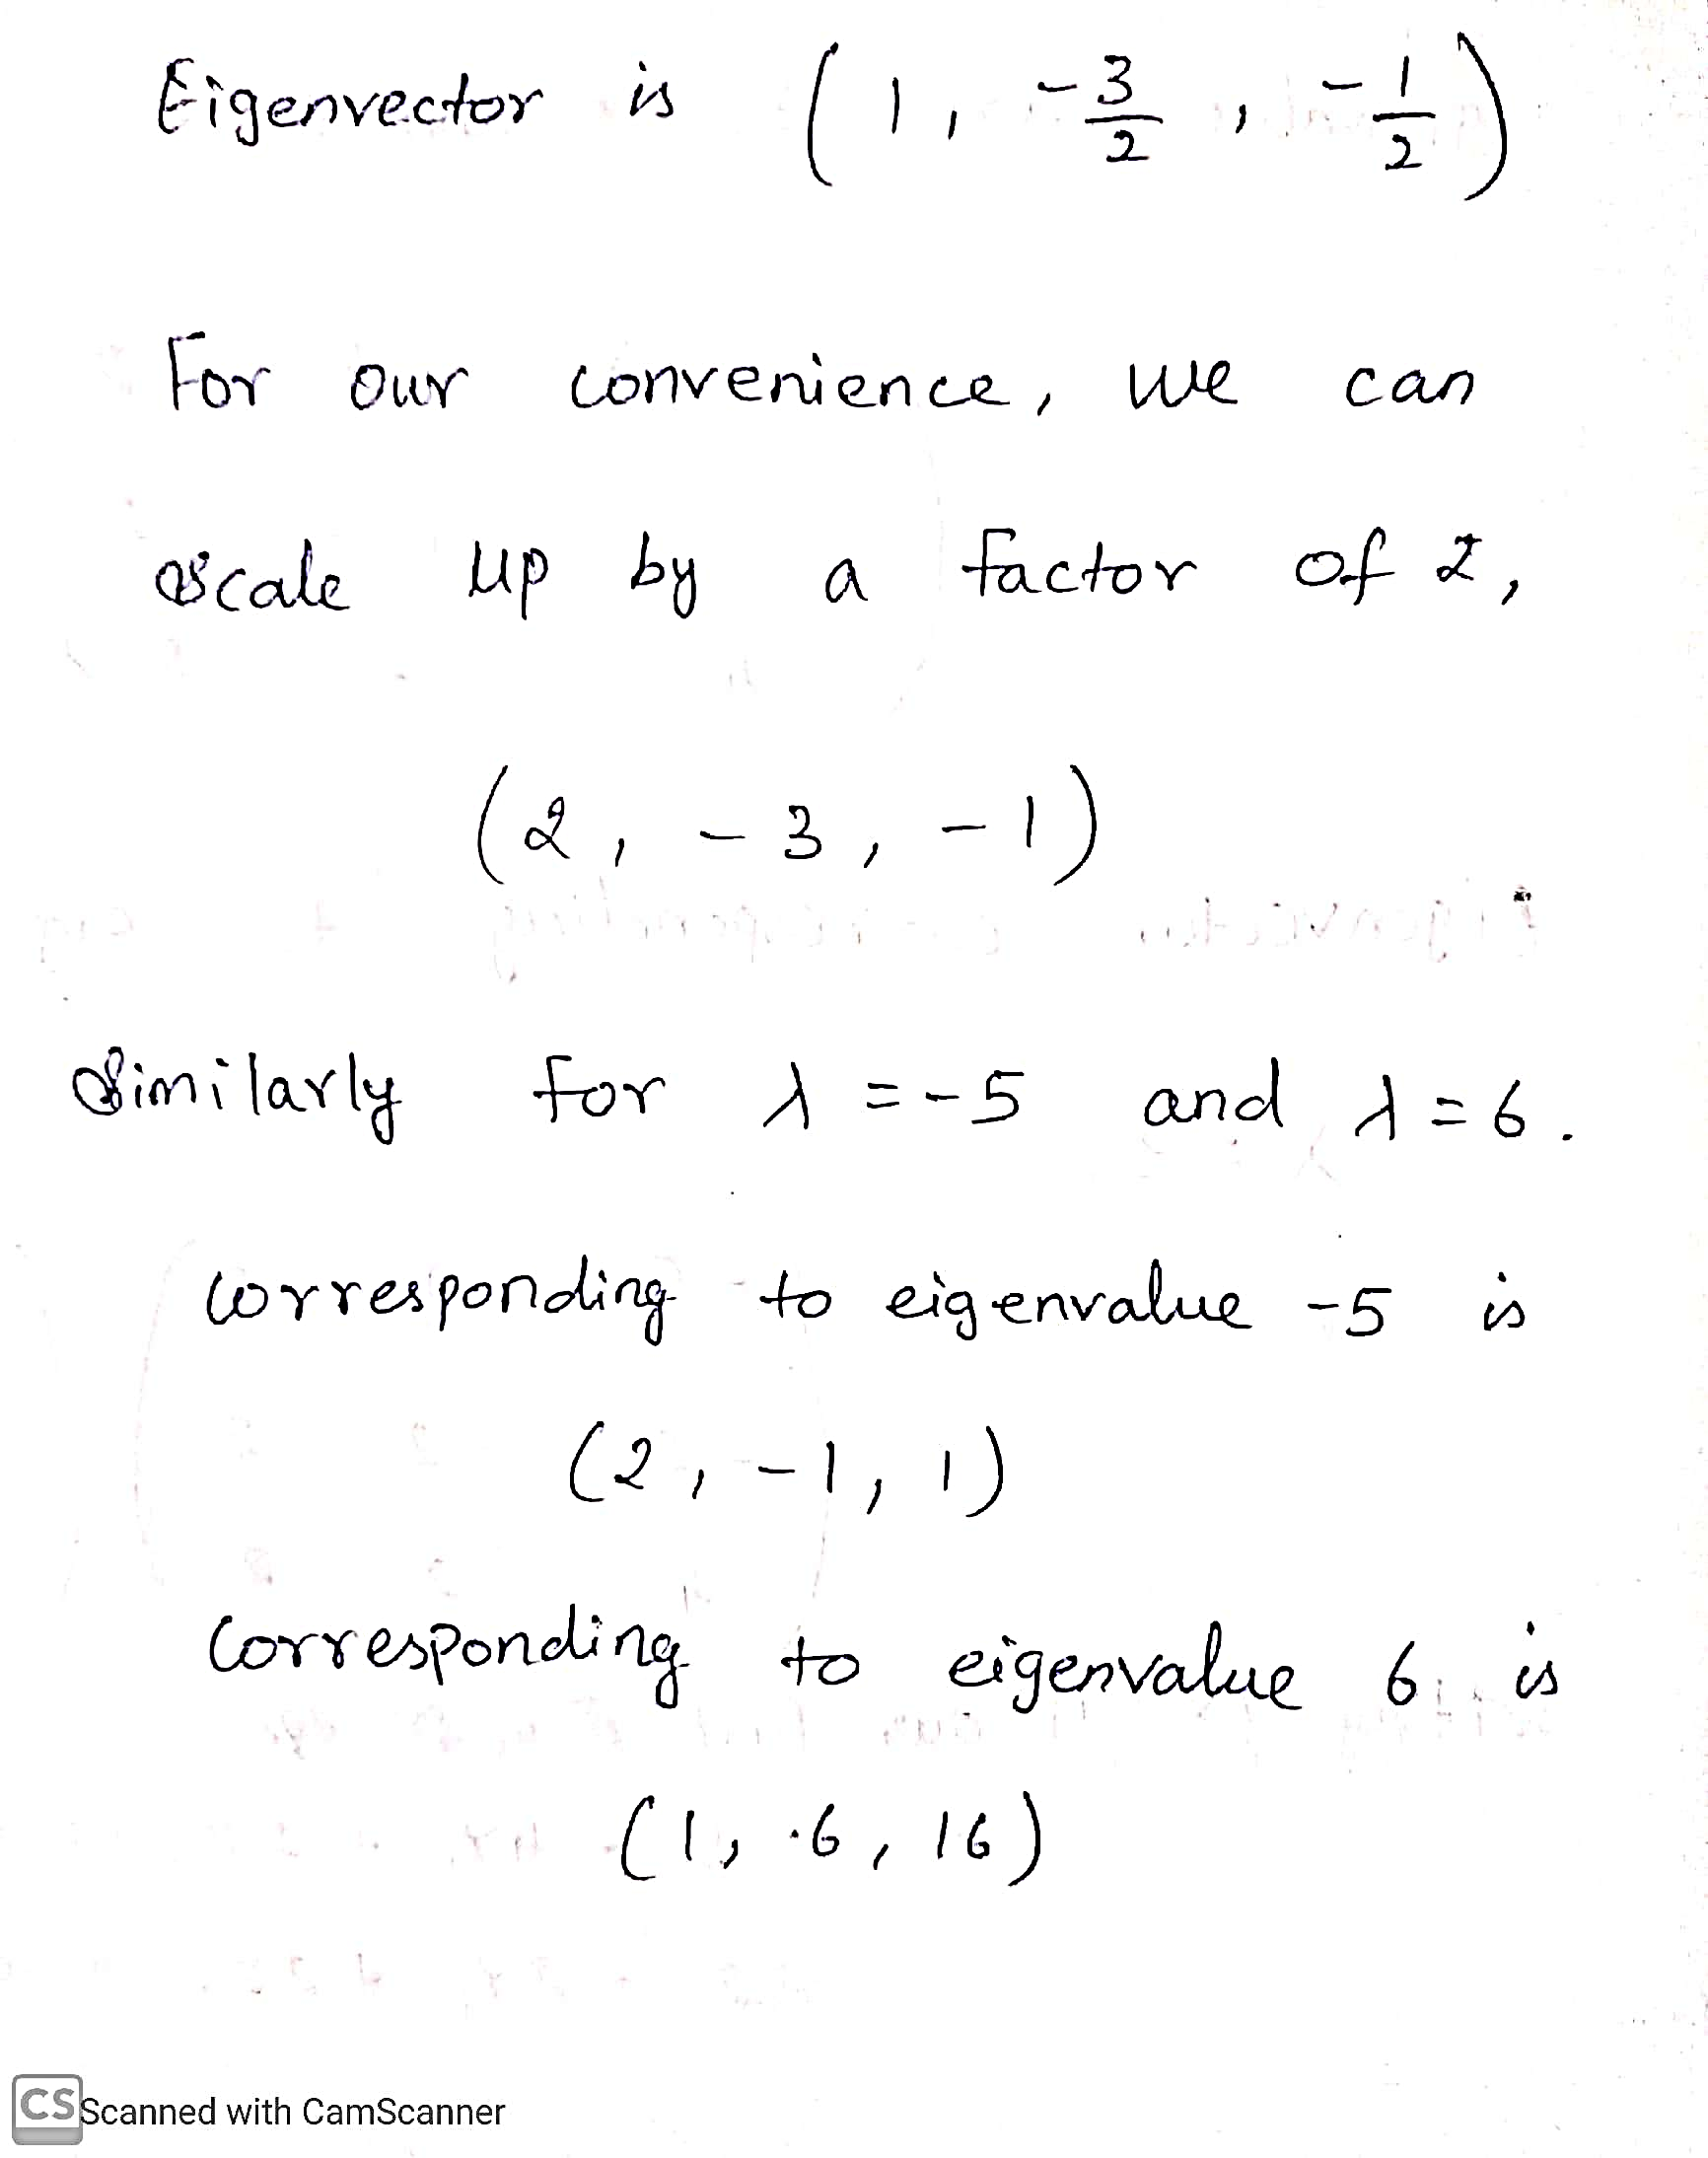 Eigenvector is (1, -3/2, -1/2)
For our convenience, we can
scale up by a factor of 2,
(2, -3, -1)
Similarly for λ = -5 and λ = 6.
Corresponding to eigenvalue -5 is
(2, -1, 1)
Corresponding to eigenvalue 6 is
(1, 6, 16)
CS Scanned with CamScanner